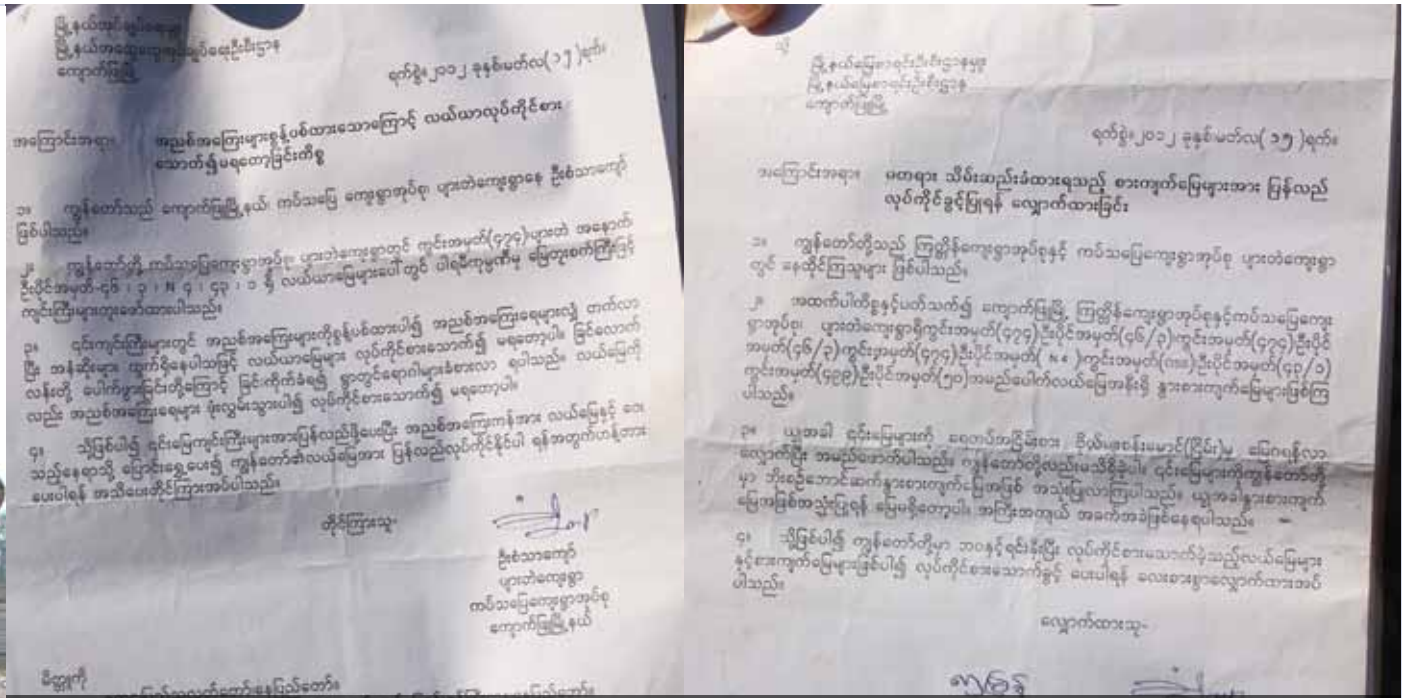 မြို့နယ်အုပ်ချုပ်ရေးမှူး
မြို့နယ်အထွေထွေအုပ်ချုပ်ရေးဦးစီးဌာန
ကျောက်ဖြူမြို့
ရက်စွဲ၊ ၂၀၁၂ ခုနှစ်၊မတ်လ(၁၅)ရက်။
အကြောင်းအရာ။ အညစ်အကြေးများစွန့်ပစ်ထားသောကြောင့် လယ်ယာလုပ်ကိုင်စား
သောက်၍မရတော့ခြင်းကိစ္စ
၁။ ကျွန်တော်သည် ကျောက်ဖြူမြို့နယ်၊ ကပ်သပြေ ကျေးရွာအုပ်စု၊ ပျားတဲကျေးရွာနေ ဦးစံသာကျော်
ဖြစ်ပါသည်။
၂။ ကျွန်တော်တို့ ကပ်သပြေကျေးရွာအုပ်စု၊ ပျားတဲကျေးရွာတွင် ကွင်းအမှတ်(၄၇၄)ပျားတဲ အနောက်
ဦးပိုင်အမှတ်-၄၆ ၊ ၃ ၊ N ၄ ၊ ၄၃ ၊ ၁ ရှိ လယ်ယာမြေများပေါ်တွင် ပါရမီကုမ္ပဏီမှ မြေတူးစက်ကြီးဖြင့်
ကျင်းကြီးများတူးဖော်ထားပါသည်။
၃။ ၎င်းကျင်းကြီးများတွင် အညစ်အကြေးများကိုစွန့်ပစ်ထားပါ၍ အညစ်အကြေးရေများလျှံ တက်လာ
ပြီး အနံဆိုးများ ထွက်ရှိနေပါသဖြင့် လယ်ယာမြေများ လုပ်ကိုင်စားသောက်၍ မရတော့ပါ။ ခြင်လောက်
လန်းတို့ ပေါက်ဖွားခြင်းတို့ကြောင့် ခြင်းကိုက်ခံရ၍ ရွာတွင်ရောဂါများခံစားလာ ရပါသည်။ လယ်မြေကို
လည်း အညစ်အကြေးရေများ ဖုံးလွှမ်းသွားပါ၍ လုပ်ကိုင်စားသောက်၍ မရတော့ပါ။
၄။ သို့ဖြစ်ပါ၍ ၎င်းမြေကျင်းကြီးများအားပြန်လည်ဖို့ပေးပြီး အညစ်အကြေးကန်အား လယ်မြေနှင့် ဝေး
သည့်နေရာသို့ ပြောင်းရွှေ့ပေး၍ ကျွန်တော်၏လယ်မြေအား ပြန်လည်လုပ်ကိုင်နိုင်ပါ ရန်အတွက်ဟန့်တား
ပေးပါရန် အသိပေးတိုင်ကြားအပ်ပါသည်။
တိုင်ကြားသူ-
ဦးစံသာကျော်
ပျားတဲကျေးရွာ
ကပ်သပြေကျေးရွာအုပ်စု
ကျောက်ဖြူမြို့နယ်
မိတ္တူကို
သို့
မြို့နယ်မြေစာရင်းဦးစီးဌာနမှူး
မြို့နယ်မြေစာရင်းဦးစီးဌာန
ကျောက်ဖြူမြို့
ရက်စွဲ၊ ၂၀၁၂ ခုနှစ်၊မတ်လ( ၁၅ )ရက်။
အကြောင်းအရာ။ မတရား သိမ်းဆည်းခံထားရသည့် စားကျက်မြေများအား ပြန်လည်
လုပ်ကိုင်ခွင့်ပြုရန် လျှောက်ထားခြင်း
၁။ ကျွန်တော်တို့သည် ကြတ္တိန်ကျေးရွာအုပ်စုနှင့် ကပ်သပြေကျေးရွာအုပ်စု ပျားတဲကျေးရွာ
တွင် နေထိုင်ကြသူများ ဖြစ်ပါသည်။
၂။ အထက်ပါကိစ္စနှင့်ပတ်သက်၍ ကျောက်ဖြူမြို့၊ ကြတ္တိန်ကျေးရွာအုပ်စုနှင့်ကပ်သပြေကျေး
ရွာအုပ်စု၊ ပျားတဲကျေးရွာရှိကွင်းအမှတ်(၄၇၄)ဦးပိုင်အမှတ်(၄၆/၃)ကွင်းအမှတ်(၄၇၄)ဦးပိုင်
အမှတ်(၄၆/၃)ကွင်းအမှတ်(၄၇၄)ဦးပိုင်အမှတ်( N ၈ )ကွင်းအမှတ် ဦးပိုင်အမှတ်(၄၃/၁)
ကွင်းအမှတ်(၄၉၉)ဦးပိုင်အမှတ်(၅၀)အမည်ပေါက်လယ်မြေအနီးရှိ နွားစားကျက်မြေများဖြစ်ကြ
ပါသည်။
၃။ ယ္ခုအခါ ၎င်းမြေများကို ရေတပ်အငြိမ်းစား ဗိုလ်မှူးစန်းမောင်(ငြိမ်း)မှ မြေဂရန်လာ
လျှောက်ပြီး အမည်ဖောက်ပါသည်။ ကျွန်တော်တို့လည်းမသိရှိခဲ့ပါ။ ၎င်းမြေများကိုကျွန်တော်တို့
မှာ ဘိုးစဉ်ဘောင်ဆက်နွားစားကျက်မြေအဖြစ် အသုံးပြုလာကြပါသည်။ ယ္ခုအခါနွားစားကျက်
မြေအဖြစ်အသုံးပြုရန် မြေမရှိတော့ပါ။ အကြီးအကျယ် အခက်အခဲဖြစ်နေရပါသည်။
၄။ သို့ဖြစ်ပါ၍ ကျွန်တော်တို့မှာ ဘဝနှင့်ရင်းနှီးပြီး လုပ်ကိုင်စားသောက်ခဲ့သည့်လယ်မြေများ
နှင့်စားကျက်မြေများဖြစ်ပါ၍ လုပ်ကိုင်စားသောက်ခွင့် ပေးပါရန် လေးစားစွာလျှောက်ထားအပ်
ပါသည်။
လျှောက်ထားသူ-